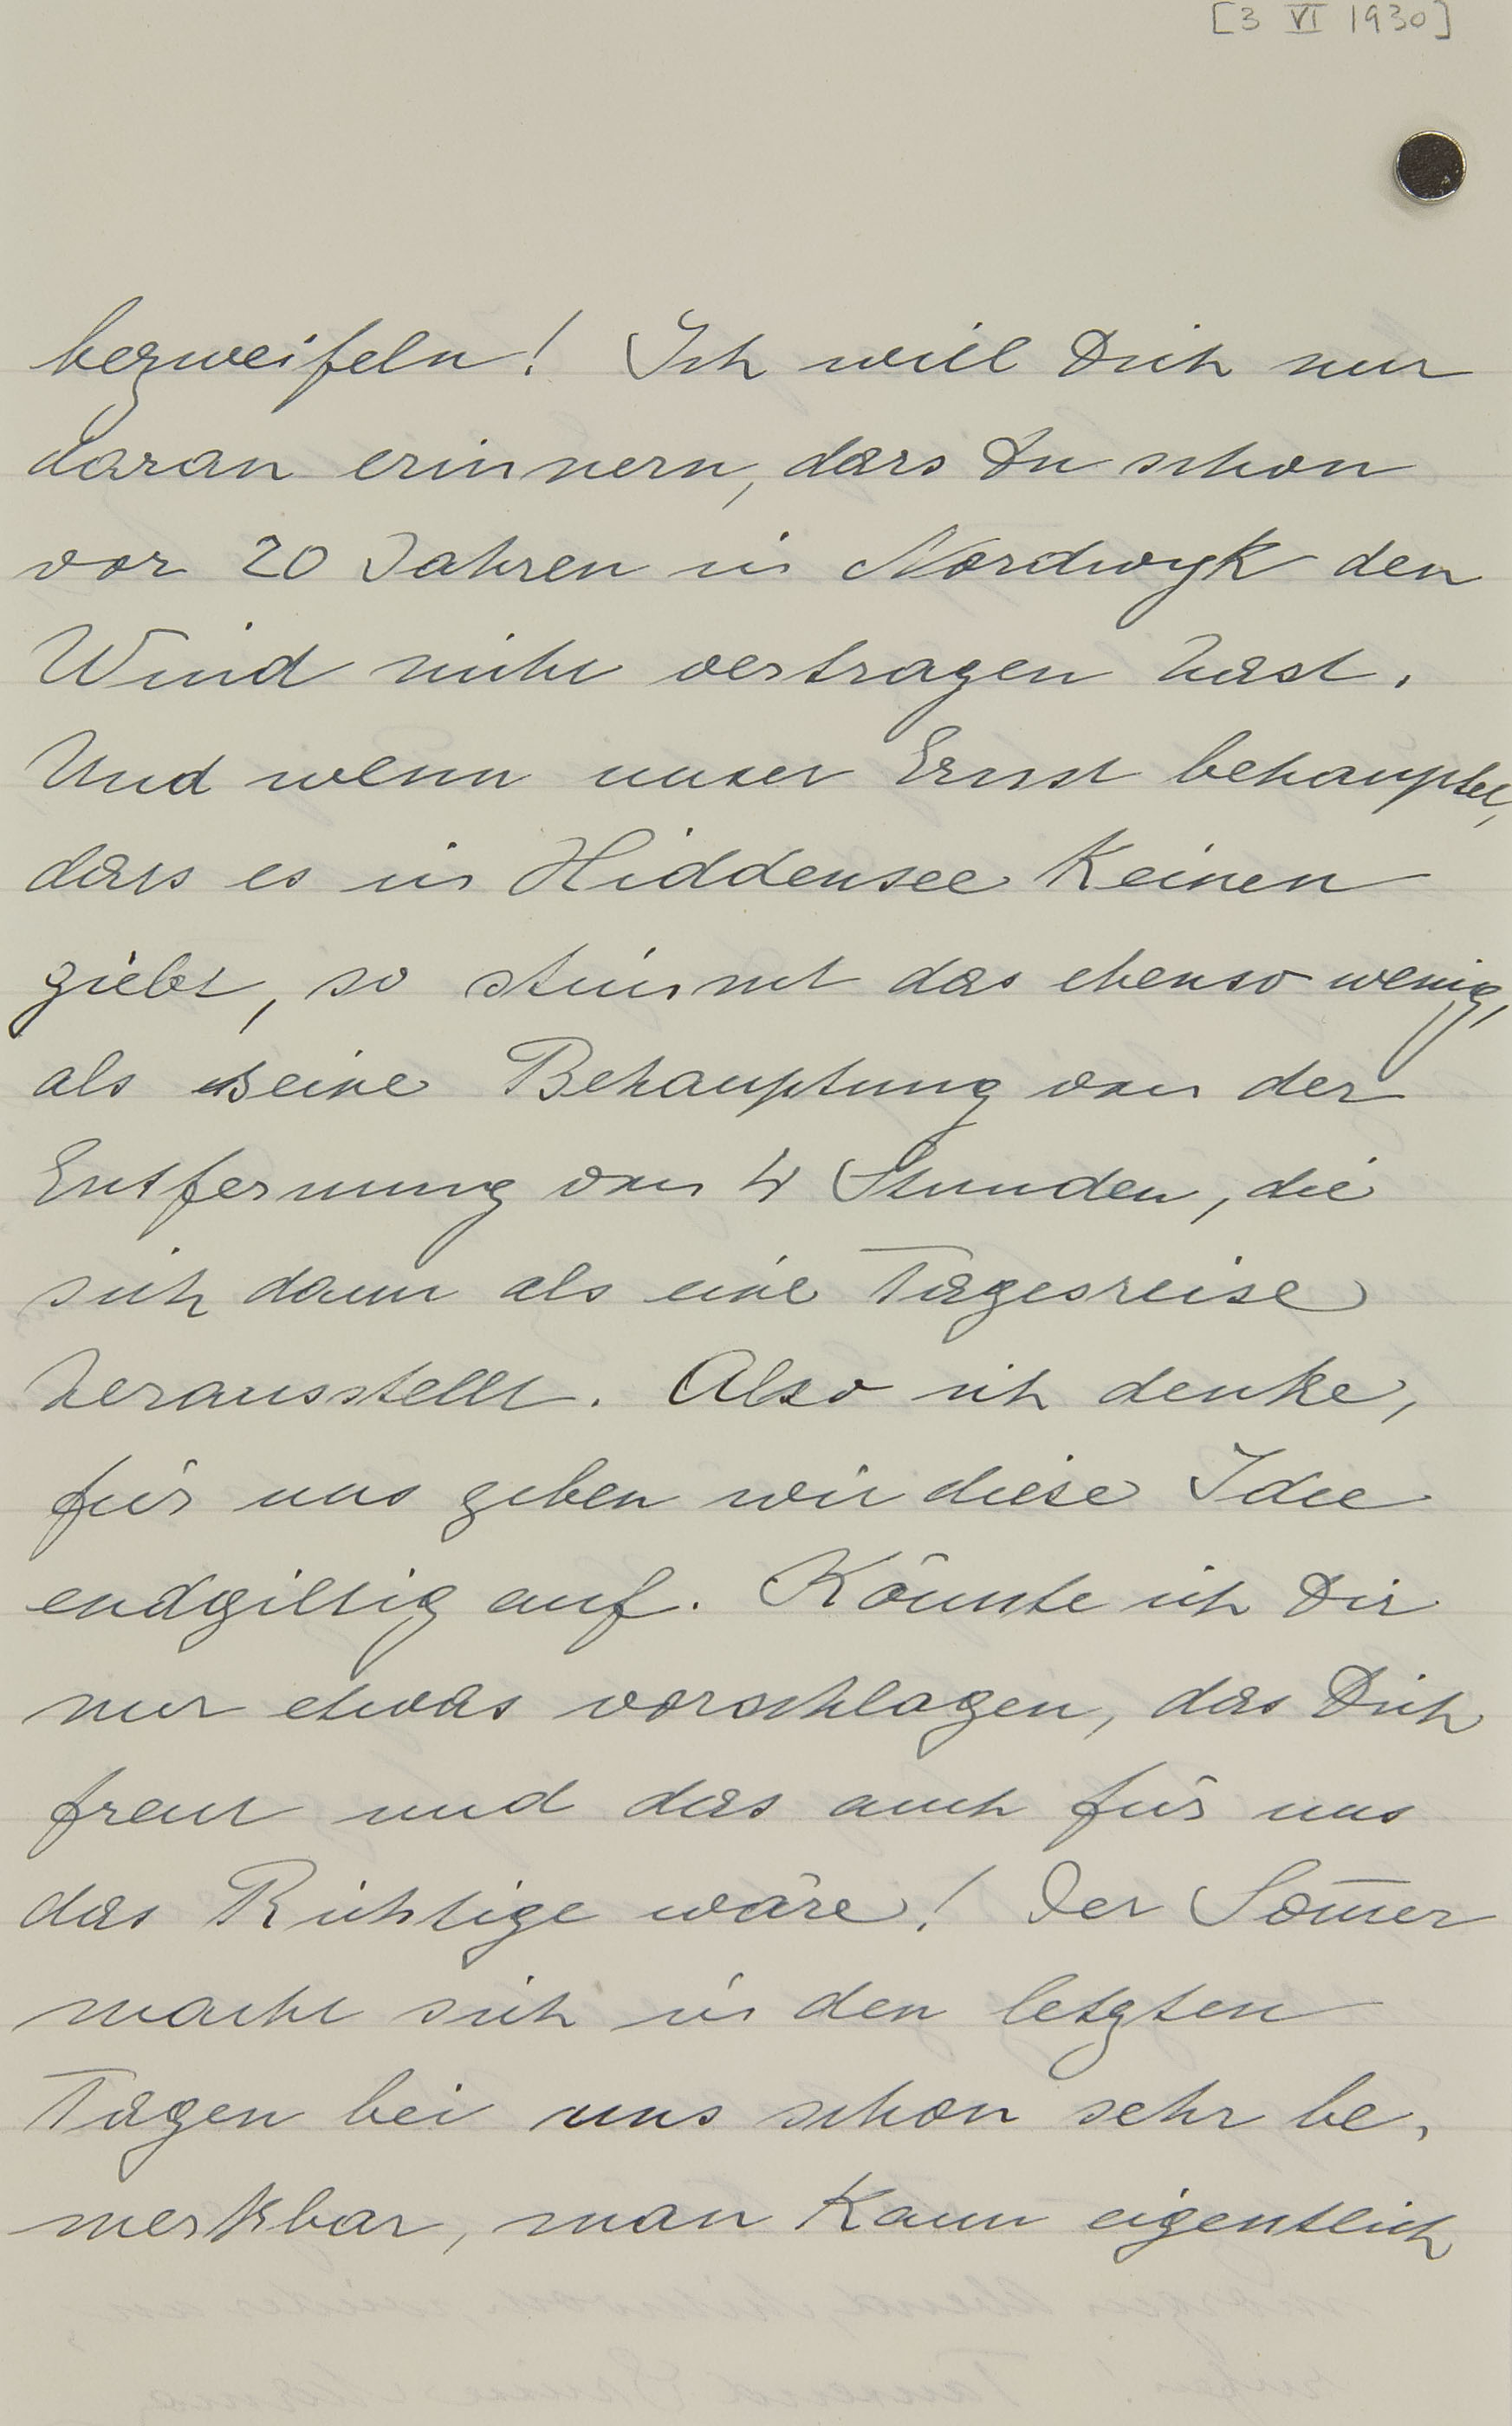 [3 VI 1930]
bezweifeln! Ich will Dich nur
daran erinnern, dass Du schon
vor 20 Jahren in Nordwyk den
Wind nicht vertragen hast.
Und wenn unser Ernst behauptet,
dass es in Hiddensee keinen
giebt, so stimmt das ebenso wenig,
als seine Behauptung von der
Entfernung von 4 Stunden, die
sich dann als eine Tagesreise
herausstellt. Also ich denke,
für uns geben wir diese Idee
endgiltig auf. Könnte ich Dir
nur etwas vorschlagen, das Dich
freut und das auch für uns
das Richtige wäre! Der Som̅er
macht sich in den letzten
Tagen bei uns schon sehr be-
merkbar, man kann eigentlich